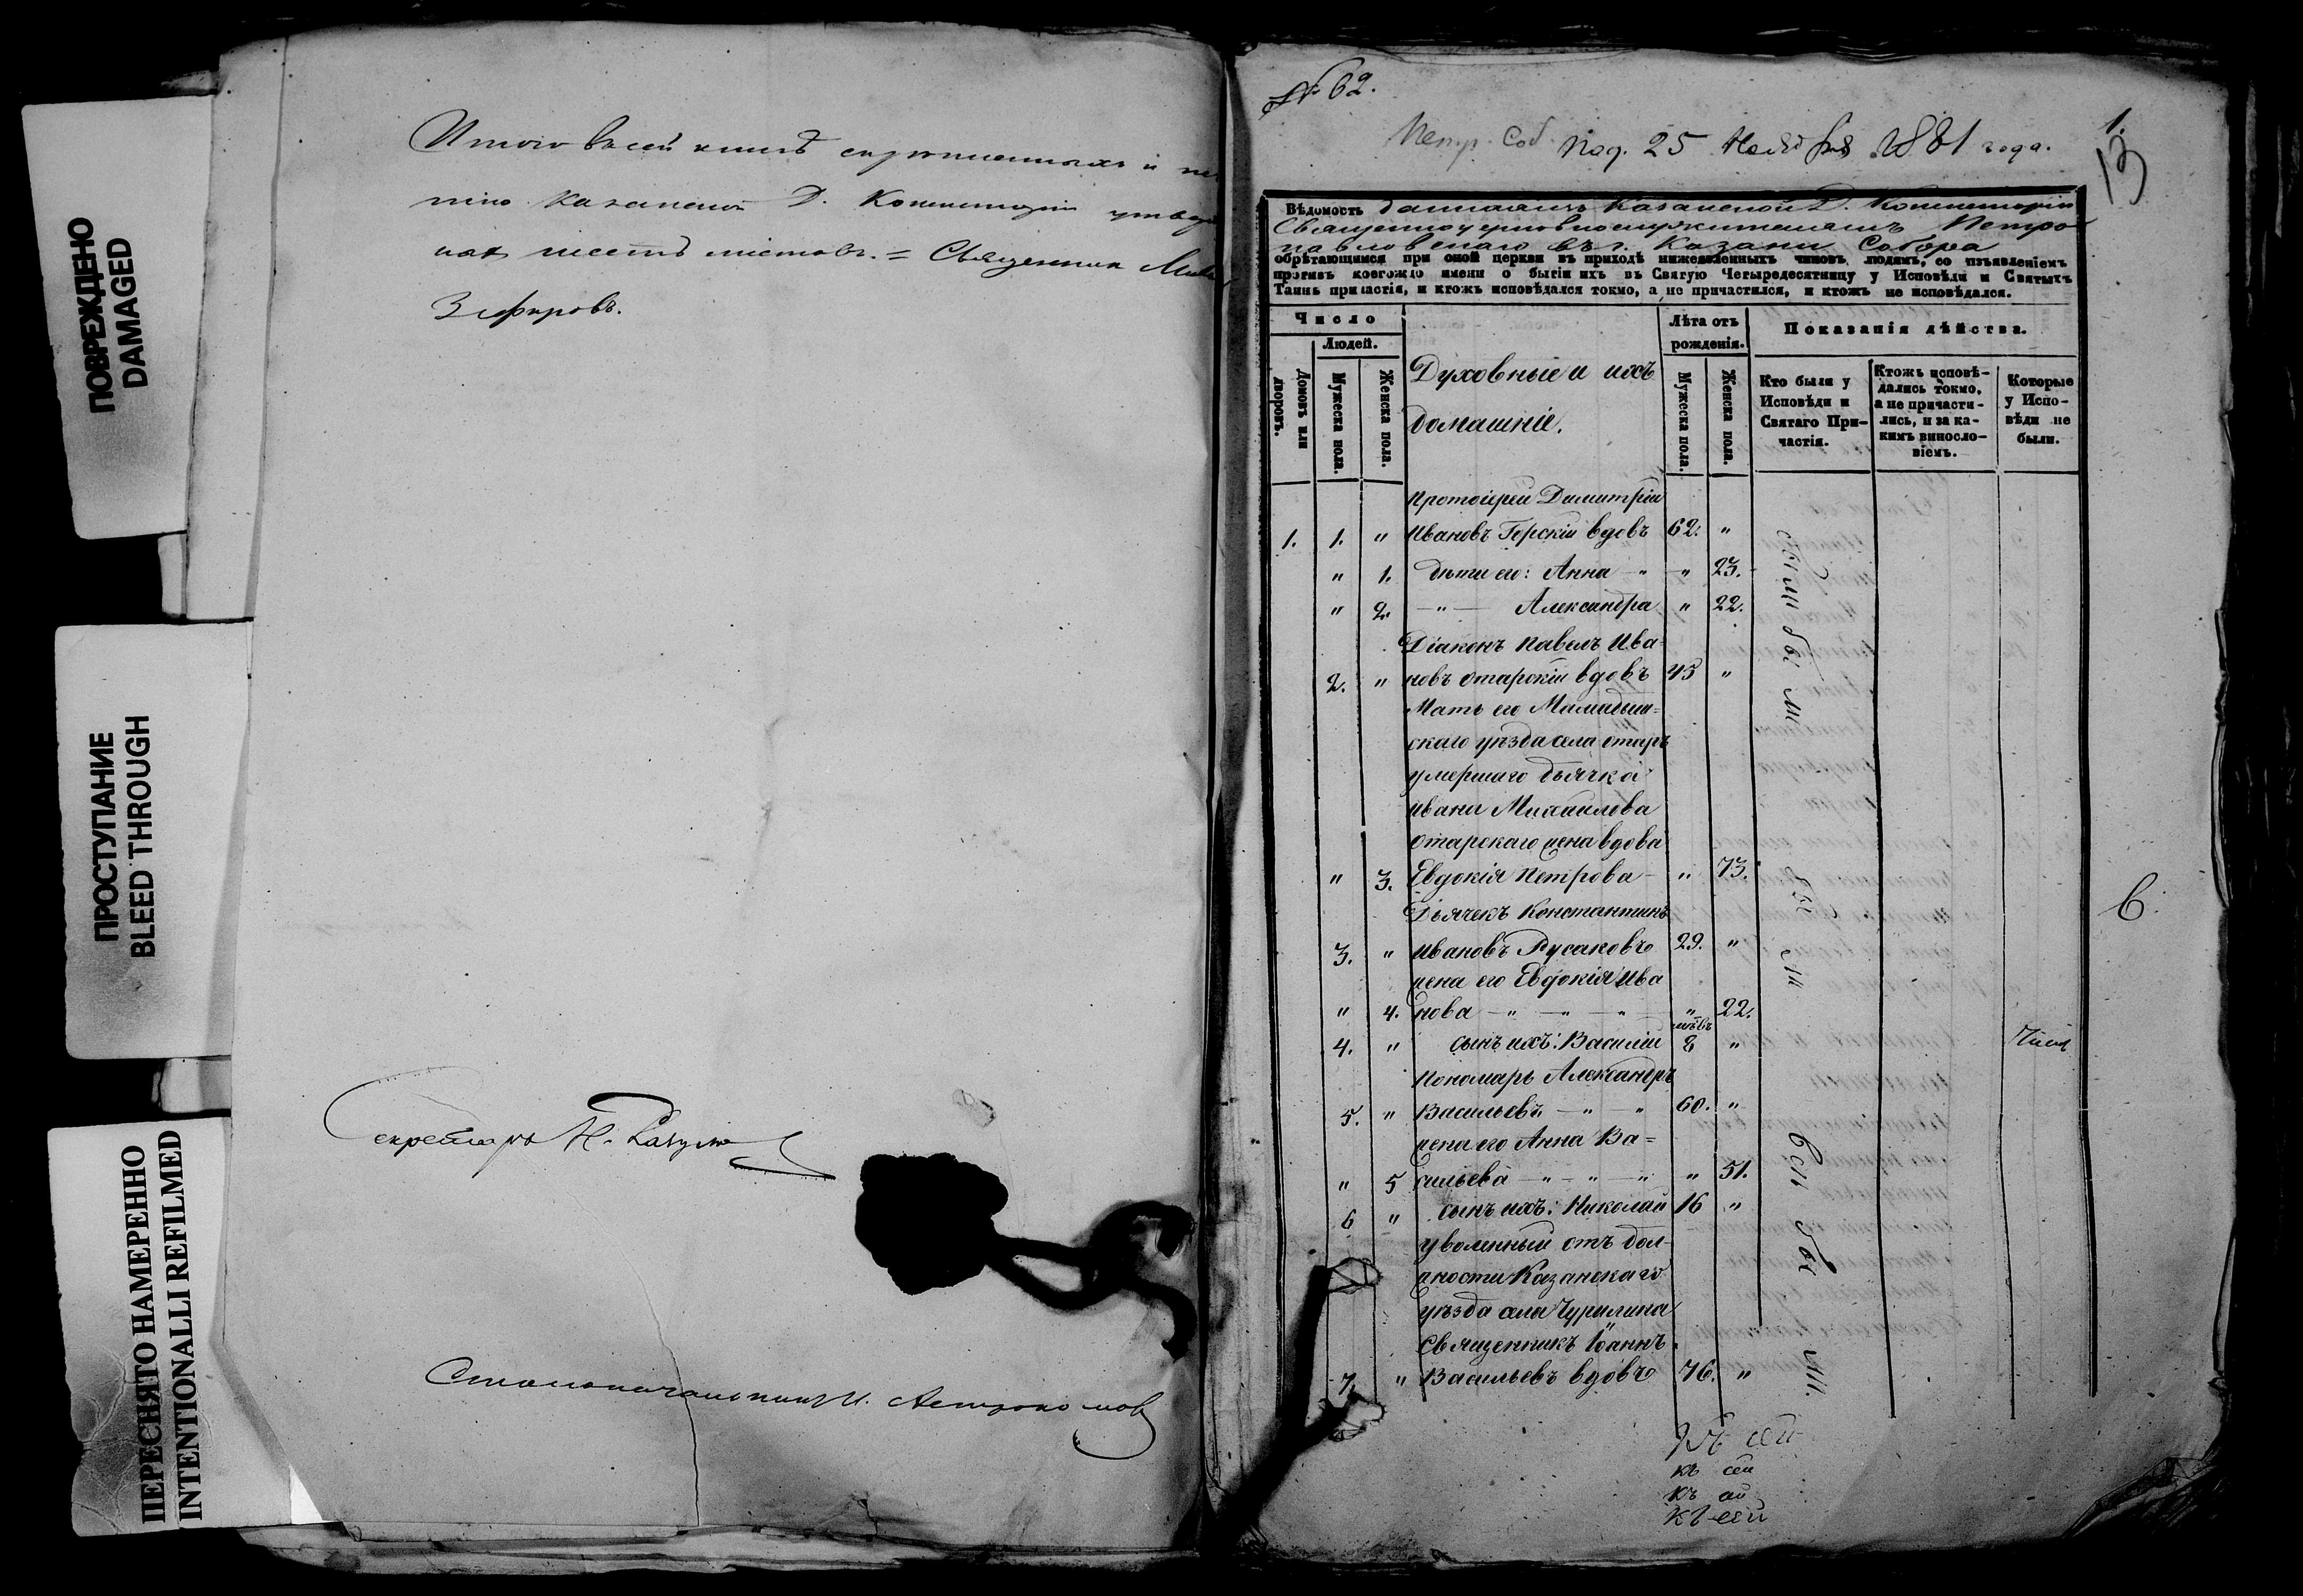 ПОВРЕЖДЕНО
DAMAGED
ПРОСТУПАНИЕ
BLEED THROUGH
ПЕРЕСНЯТО НАМЕРЕННО
INTENTIONALLI REFILMED
Итого в сей книгѣ скрѣпленныхъ и
Казанской Д. Консисторіи
шесть листовъ. = Священник
Зефировъ.
Секретарь Н.
Столоначальникъ И. Астрономов
№ 62.
Петр. Соб. под. 25 Ноября 1881 года.
1.
13
Вѣдомость Казанской Д. Консисторіи
Священноцерковнослужителямъ Петро
павловскаго въ г. Казани Собора
обрѣтающимся при оной церкви въ приходѣ нижеявленныхъ чиновъ людямъ, со изъявленіемъ
противъ коегождо имени о бытіи ихъ въ Святую Четыредесятницу у Исповѣди и Святыхъ
Таинъ причастія, и ктожъ исповѣдался токмо, а не причастился, и ктожъ не исповѣдался.
Число
Людей.
Домовъ или дворовъ.
Мужеска пола.
Женска пола.
Духовные и ихъ
домашніе.
Лѣта отъ
рожденія.
Мужеска пола.
Женска пола.
Показанія дѣйства.
Кто были у
Исповѣди и
Святаго При-
частія.
Ктожъ исповѣ-
дались токмо,
а не причасти-
лись, и за ка-
кимъ винословіемъ.
Которые
у Испо-
вѣди не
были.
Протоіерей Димитрій
1. 1. " Ивановъ Горскій вдовъ 62. "
" 1. дѣти его: Анна - " - " 23.
" 2. — " — Александра " 22.
Діаконъ Павелъ Ива-
2. " новъ Отарскій вдовъ 45 "
Мать его Мамадыш-
скаго уѣзда села Отаръ
умершаго дьячка
Ивана Михаилова
Отарскаго жена вдова
" 3. Евдокія Петрова - " 73.
Дьячекъ Константинъ
3. " Ивановъ Русаковъ 29. "
жена его Евдокія Ива
" 4. нова — " — " — " — " 22.
мѣс.
4. " сынъ ихъ: Василій 8 "
Пономарь Александръ
5. " Васильевъ — " — " 60. "
жена его Анна Ва=
" 5 сильева — " — " — " " 51.
6 " сынъ ихъ: Николай 16 "
уволенный отъ дол-
жности Казанскаго
уѣзда села Чурилина
Священникъ Іоаннъ
7. " Васильевъ вдовъ 76. "
были
были
в.
къ сей
къ сей
къ сей
къ сей